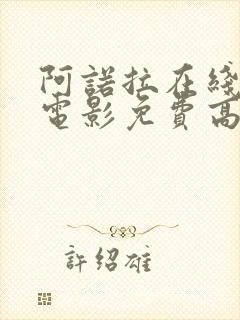 阿諾拉在綫
電影免費高
許紹雄